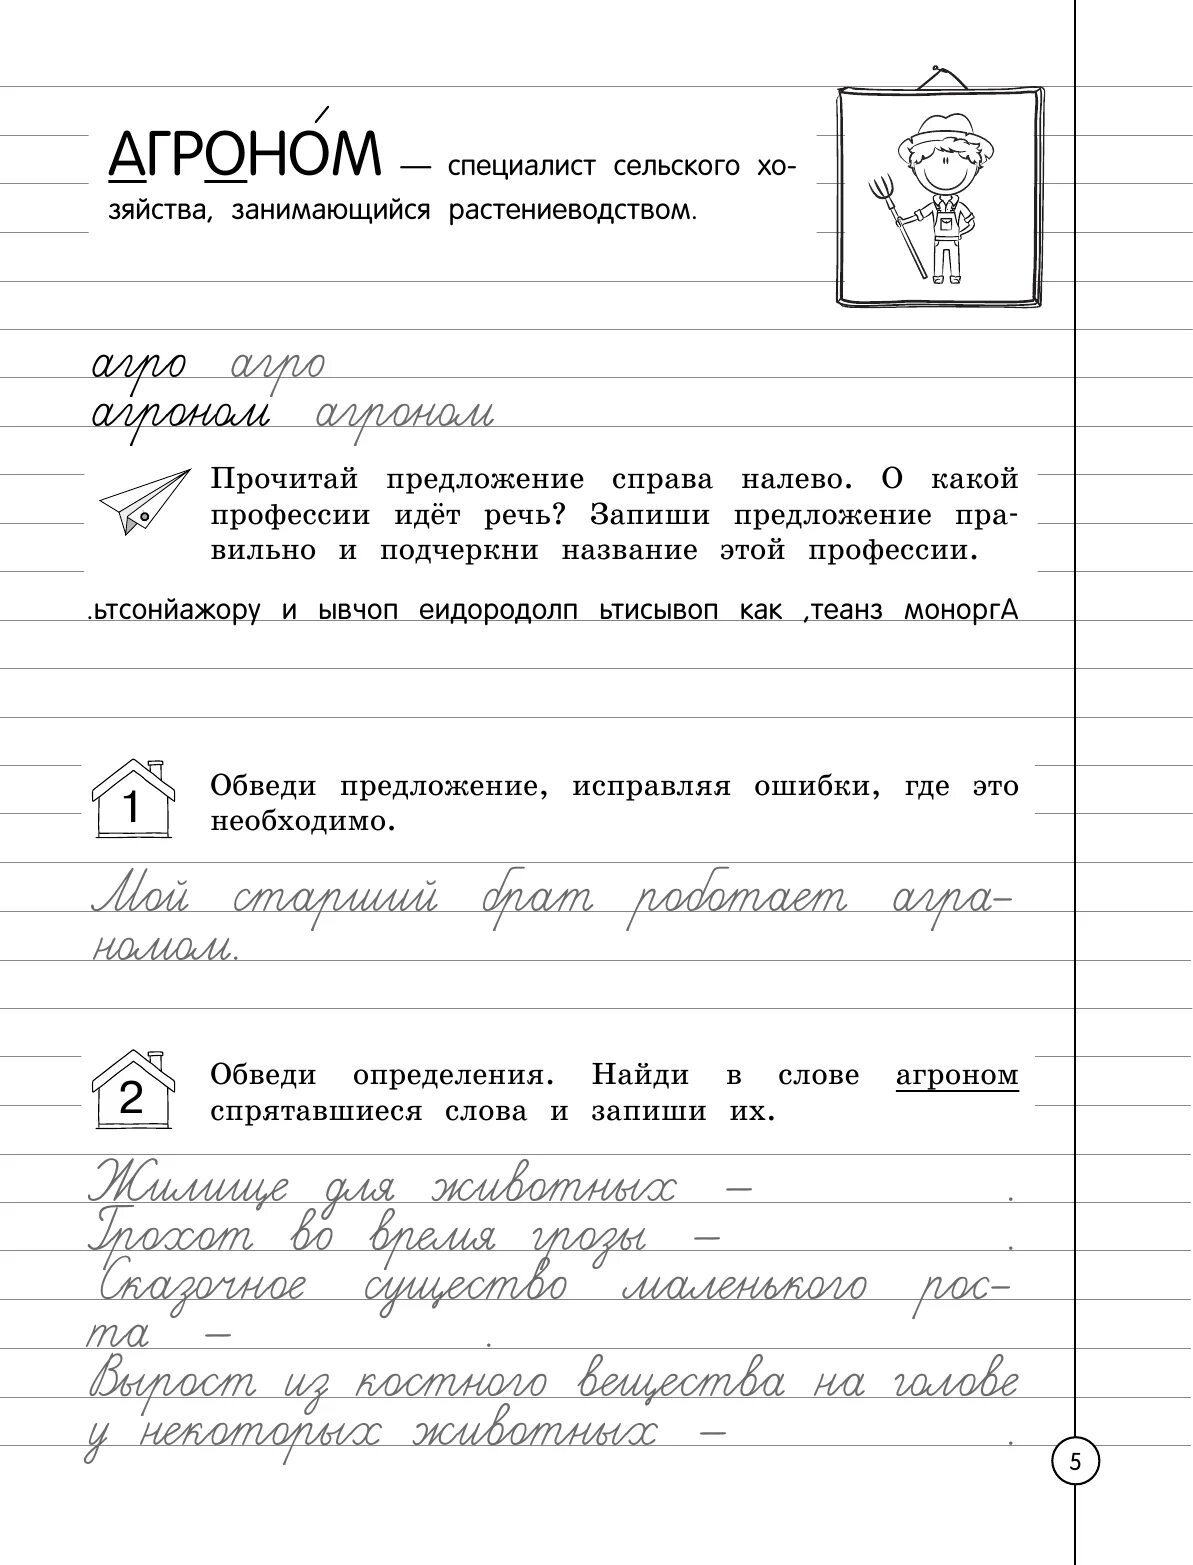 АГРОНО́М — специалист сельского хо-
зяйства, занимающийся растениеводством.
агро агро
агроном агроном
Прочитай предложение справа налево. О какой
профессии идёт речь? Запиши предложение пра-
вильно и подчеркни название этой профессии.
.ьтсонйажору и ывчоп еидородолп ьтисывоп как ,теанз моноргА
1
Обведи предложение, исправляя ошибки, где это
необходимо.
Мой старший брат роботает агра-
номом.
2
Обведи определения. Найди в слове агроном
спрятавшиеся слова и запиши их.
Жилище для животных – .
Грохот во время грозы – .
Сказочное существо маленького рос-
та – .
Вырост из костного вещества на голове
у некоторых животных – .
5